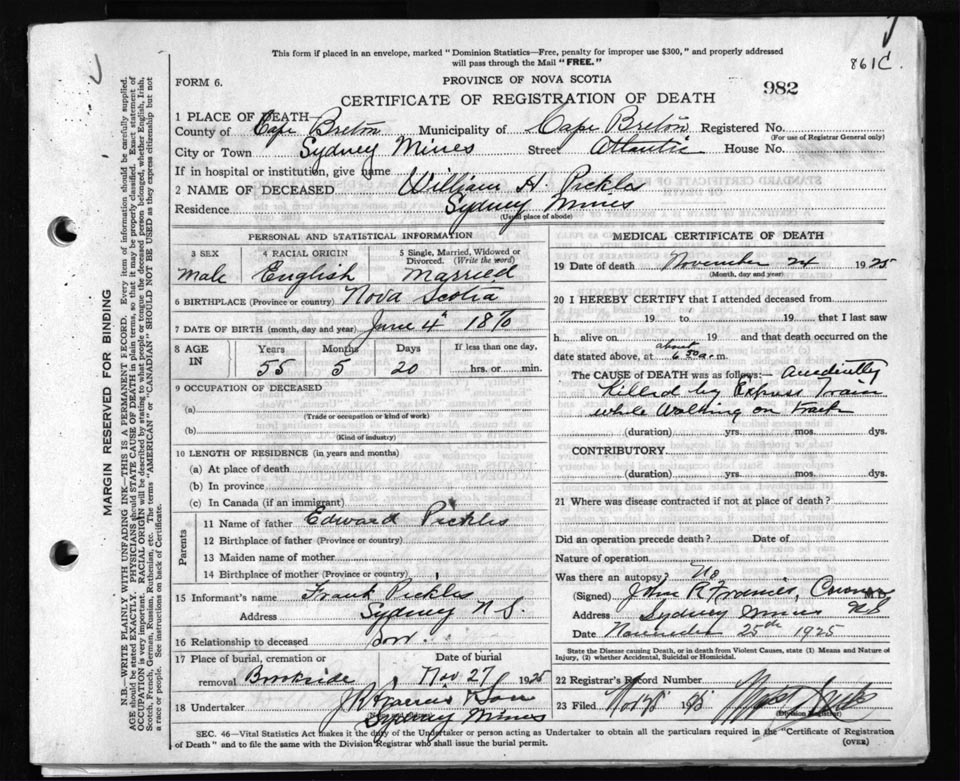 This form if placed in an envelope, marked "Dominion Statistics—Free, penalty for improper use $300," and properly addressed
will pass through the Mail "FREE."
861C.
FORM 6.
PROVINCE OF NOVA SCOTIA
982
CERTIFICATE OF REGISTRATION OF DEATH
1 PLACE OF DEATH
County of Cape Breton Municipality of Cape Breton Registered No.
(For use of Registrar General only)
City or Town Sydney Mines Street Atlantic House No.
If in hospital or institution, give name
2 NAME OF DECEASED William H. Pickles
Residence Sydney Mines
(Usual place of abode)
PERSONAL AND STATISTICAL INFORMATION
3 SEX 4 RACIAL ORIGIN 5 Single, Married, Widowed or Divorced. (Write the word)
Male English Married
6 BIRTHPLACE (Province or country) Nova Scotia
7 DATE OF BIRTH (month, day and year) June 4 1870
8 AGE IN Years Months Days If less than one day,
55 5 20 hrs. or min.
9 OCCUPATION OF DECEASED
(a)
(Trade or occupation or kind of work)
(b)
(Kind of industry)
10 LENGTH OF RESIDENCE (in years and months)
(a) At place of death
(b) In province
(c) In Canada (if an immigrant)
Parents
11 Name of father Edward Pickles
12 Birthplace of father (Province or country)
13 Maiden name of mother
14 Birthplace of mother (Province or country)
15 Informant's name Frank Pickles
Address Sydney N S.
16 Relationship to deceased son
17 Place of burial, cremation or removal Brookside Date of burial Nov 27 1925
18 Undertaker J R Francis & Son
Sydney Mines
MEDICAL CERTIFICATE OF DEATH
19 Date of death November 24 1925
(Month, day and year)
20 I HEREBY CERTIFY that I attended deceased from
19 to 19 that I last saw
h alive on 19 and that death occurred on the
date stated above, at about 6 30 a.m.
The CAUSE of DEATH was as follows:— Accidently
Killed by Express Train
while Walking on track
(duration) yrs. mos. dys.
CONTRIBUTORY.
(duration) yrs. mos. dys.
21 Where was disease contracted if not at place of death?
Did an operation precede death? Date of
Nature of operation
Was there an autopsy? No
(Signed) John R Francis, Coroner
Address Sydney Mines N S
Date November 25th 1925
State the Disease causing Death, or in death from Violent Causes, state (1) Means and Nature of
Injury, (2) whether Accidental, Suicidal or Homicidal.
22 Registrar's Record Number
23 Filed
(Division Registrar)
SEC. 46—Vital Statistics Act makes it the duty of the Undertaker or person acting as Undertaker to obtain all the particulars required in the "Certificate of Registration
of Death" and to file the same with the Division Registrar who shall issue the burial permit. (OVER)
MARGIN RESERVED FOR BINDING
N.B.—WRITE PLAINLY WITH UNFADING INK—THIS IS A PERMANENT RECORD. Every item of information should be carefully supplied.
AGE should be stated EXACTLY. PHYSICIANS should STATE CAUSE OF DEATH in plain terms, so that it may be properly classified. Exact statement of
OCCUPATION is very important. RACIAL ORIGIN will be described by stating to what people or tongue the deceased person belonged, whether English, Irish,
Scotch, French, German, Russian, Ruthenian, etc. The terms "AMERICAN" or "CANADIAN" SHOULD NOT BE USED as they express citizenship but not
a race or people. See instructions on back of Certificate.